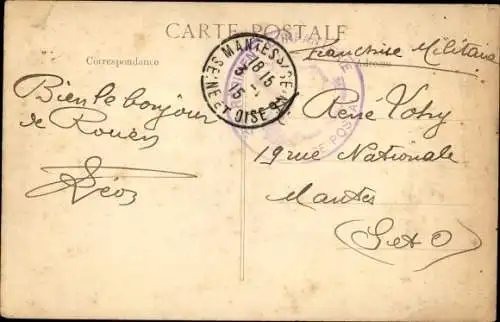 CARTE POSTALE
Correspondance
Adresse
Franchise Militaire
MANTES S/SEINE
18 15
15
SEINE ET OISE
Bien le bonjour
de Rouen
Léon
René Votry
19 rue Nationale
Mantes
(S et O)